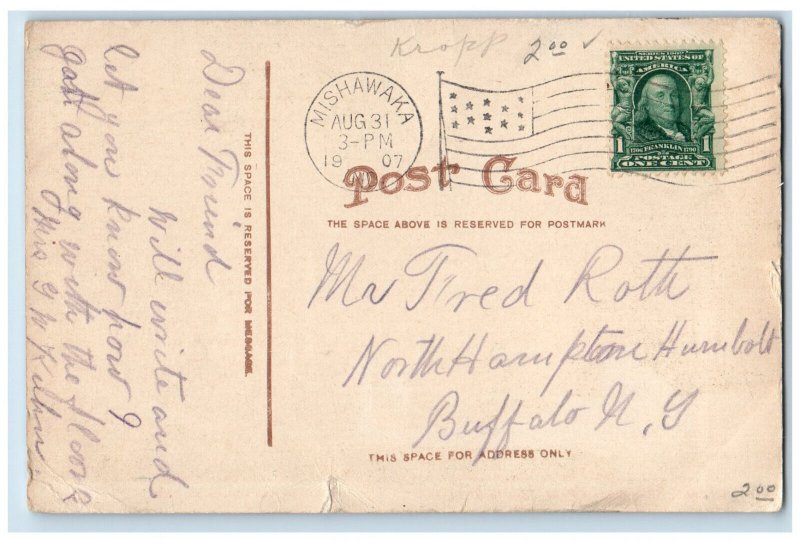 Kropp 2.00 ✓
MISHAWAKA
AUG 31
3-PM
19 07
SERIES 1902
UNITED STATES OF
AMERICA
1 1
1706 FRANKLIN 1790
POSTAGE
ONE CENT
Post Card
THE SPACE ABOVE IS RESERVED FOR POSTMARK
THIS SPACE IS RESERVED FOR MESSAGE.
Dear Friend
Will write and
let you know how I
gatt along with the floors
Mrs G W
Mr Fred Roth
North Hampton Humbolt
Buffalo N. Y
THIS SPACE FOR ADDRESS ONLY
2.00